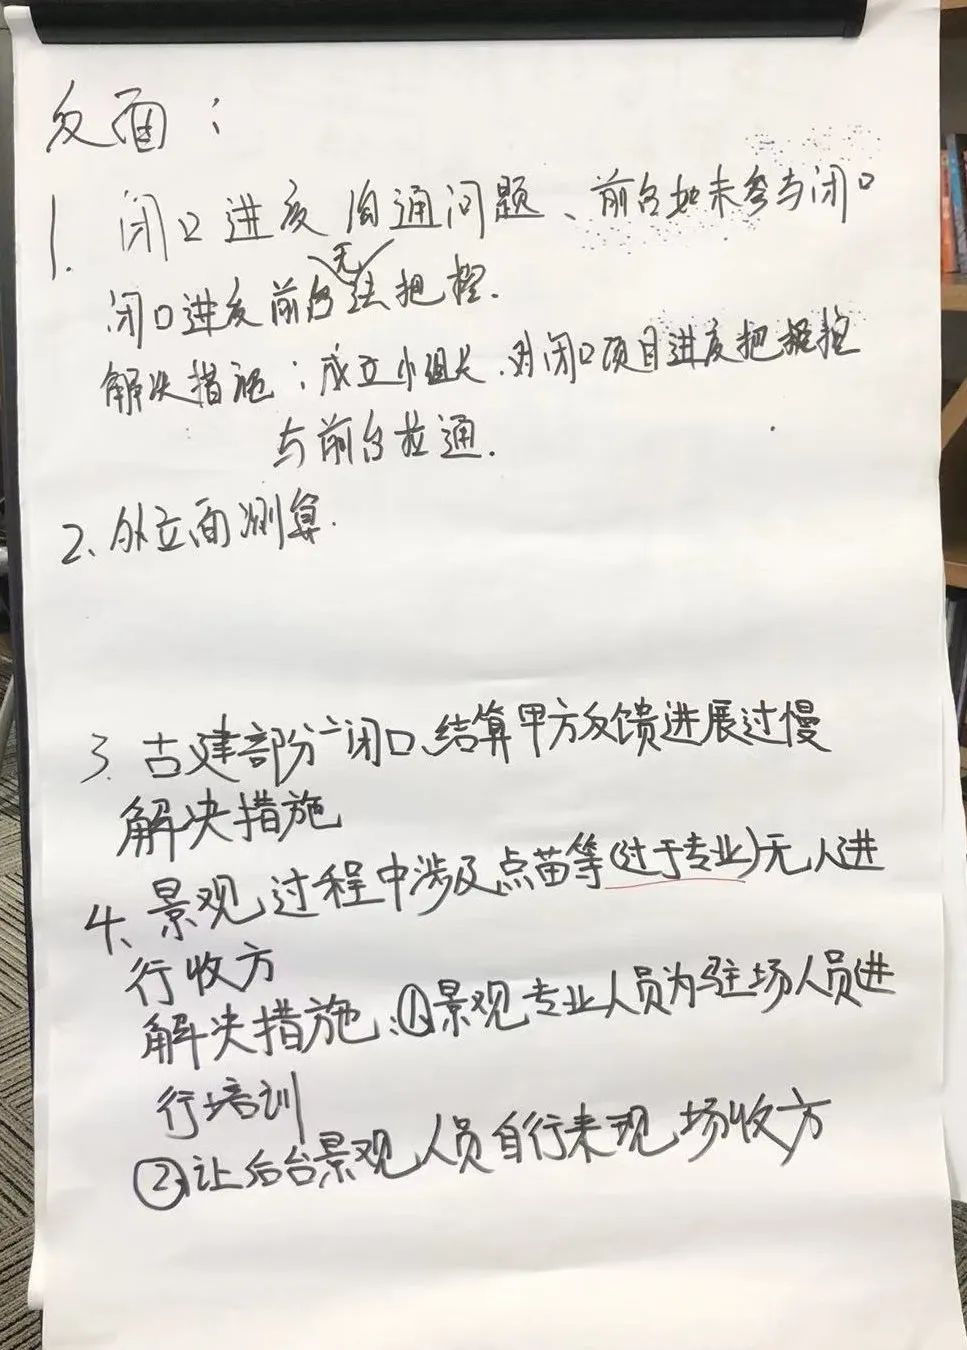 反面：
1. 闭口进度沟通问题、前台如未参与闭口
闭口进度前台无法把控.
解决措施：成立小组长.对闭口项目进度把控
与前台拉通.
2、外立面测算.
3. 古建部分二闭口、结算甲方反馈进展过慢
解决措施
4、景观、过程中涉及点苗等(过于专业)无人进
行收方
解决措施：①景观专业人员为驻场人员进
行培训
②让后台景观人员自行来现场收方